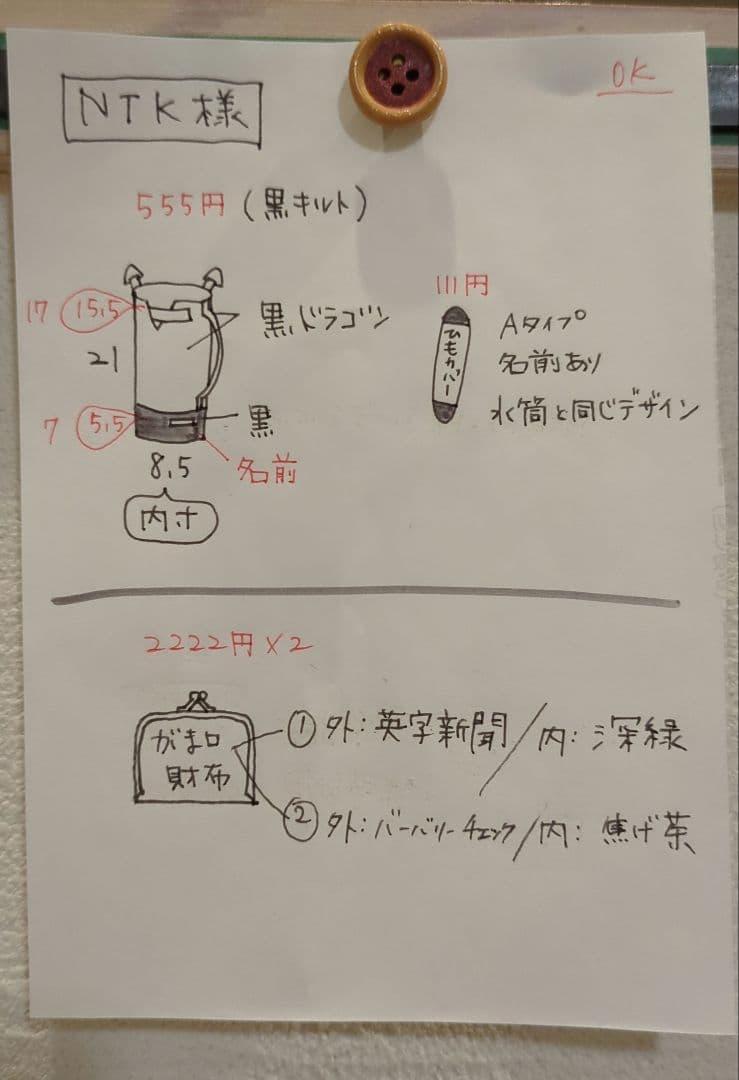 OK
NTK様
555円(黒キルト)
17 15,5
21
黒,ドラゴン
7 5,5
黒
8,5
名前
内寸
111円
ひもカバー
Aタイプ
名前あり
水筒と同じデザイン
2222円×2
がま口
財布
① 外:英字新聞/内:深緑
② 外:バーバリーチェック/内:焦げ茶